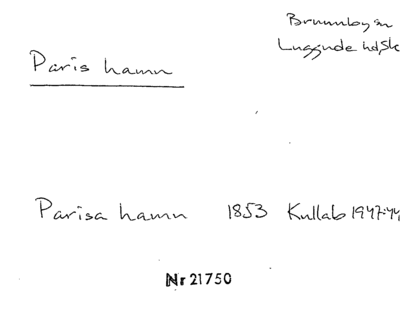 Brunnby sn
Luggude hd, Sk
Paris hamn
Parisa hamn 1853 Kullab 1947:44
Nr 21750